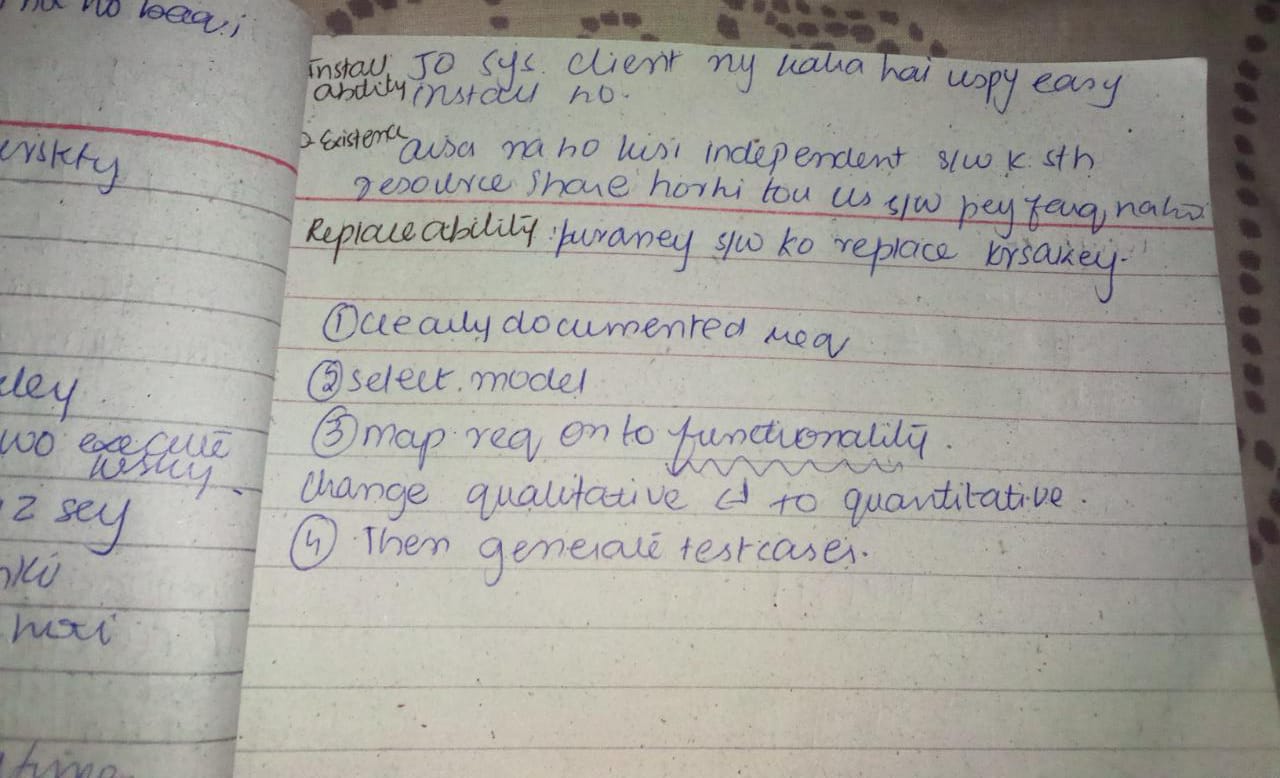 beaq;
erskty
dey
wo execute
2 sey
mai
time
Install JO sys. client ny kaha hai uspy easy
ability install ho.
Existence aisa na ho kisi independent s/w k sth
resource share horhi tou us s/w pey farq naho
Replaceability : puraney s/w ko replace krsakey.
① clearly documented req
② select model
③ map req on to functionality.
change qualitative to quantitative.
④ Then generate testcases.